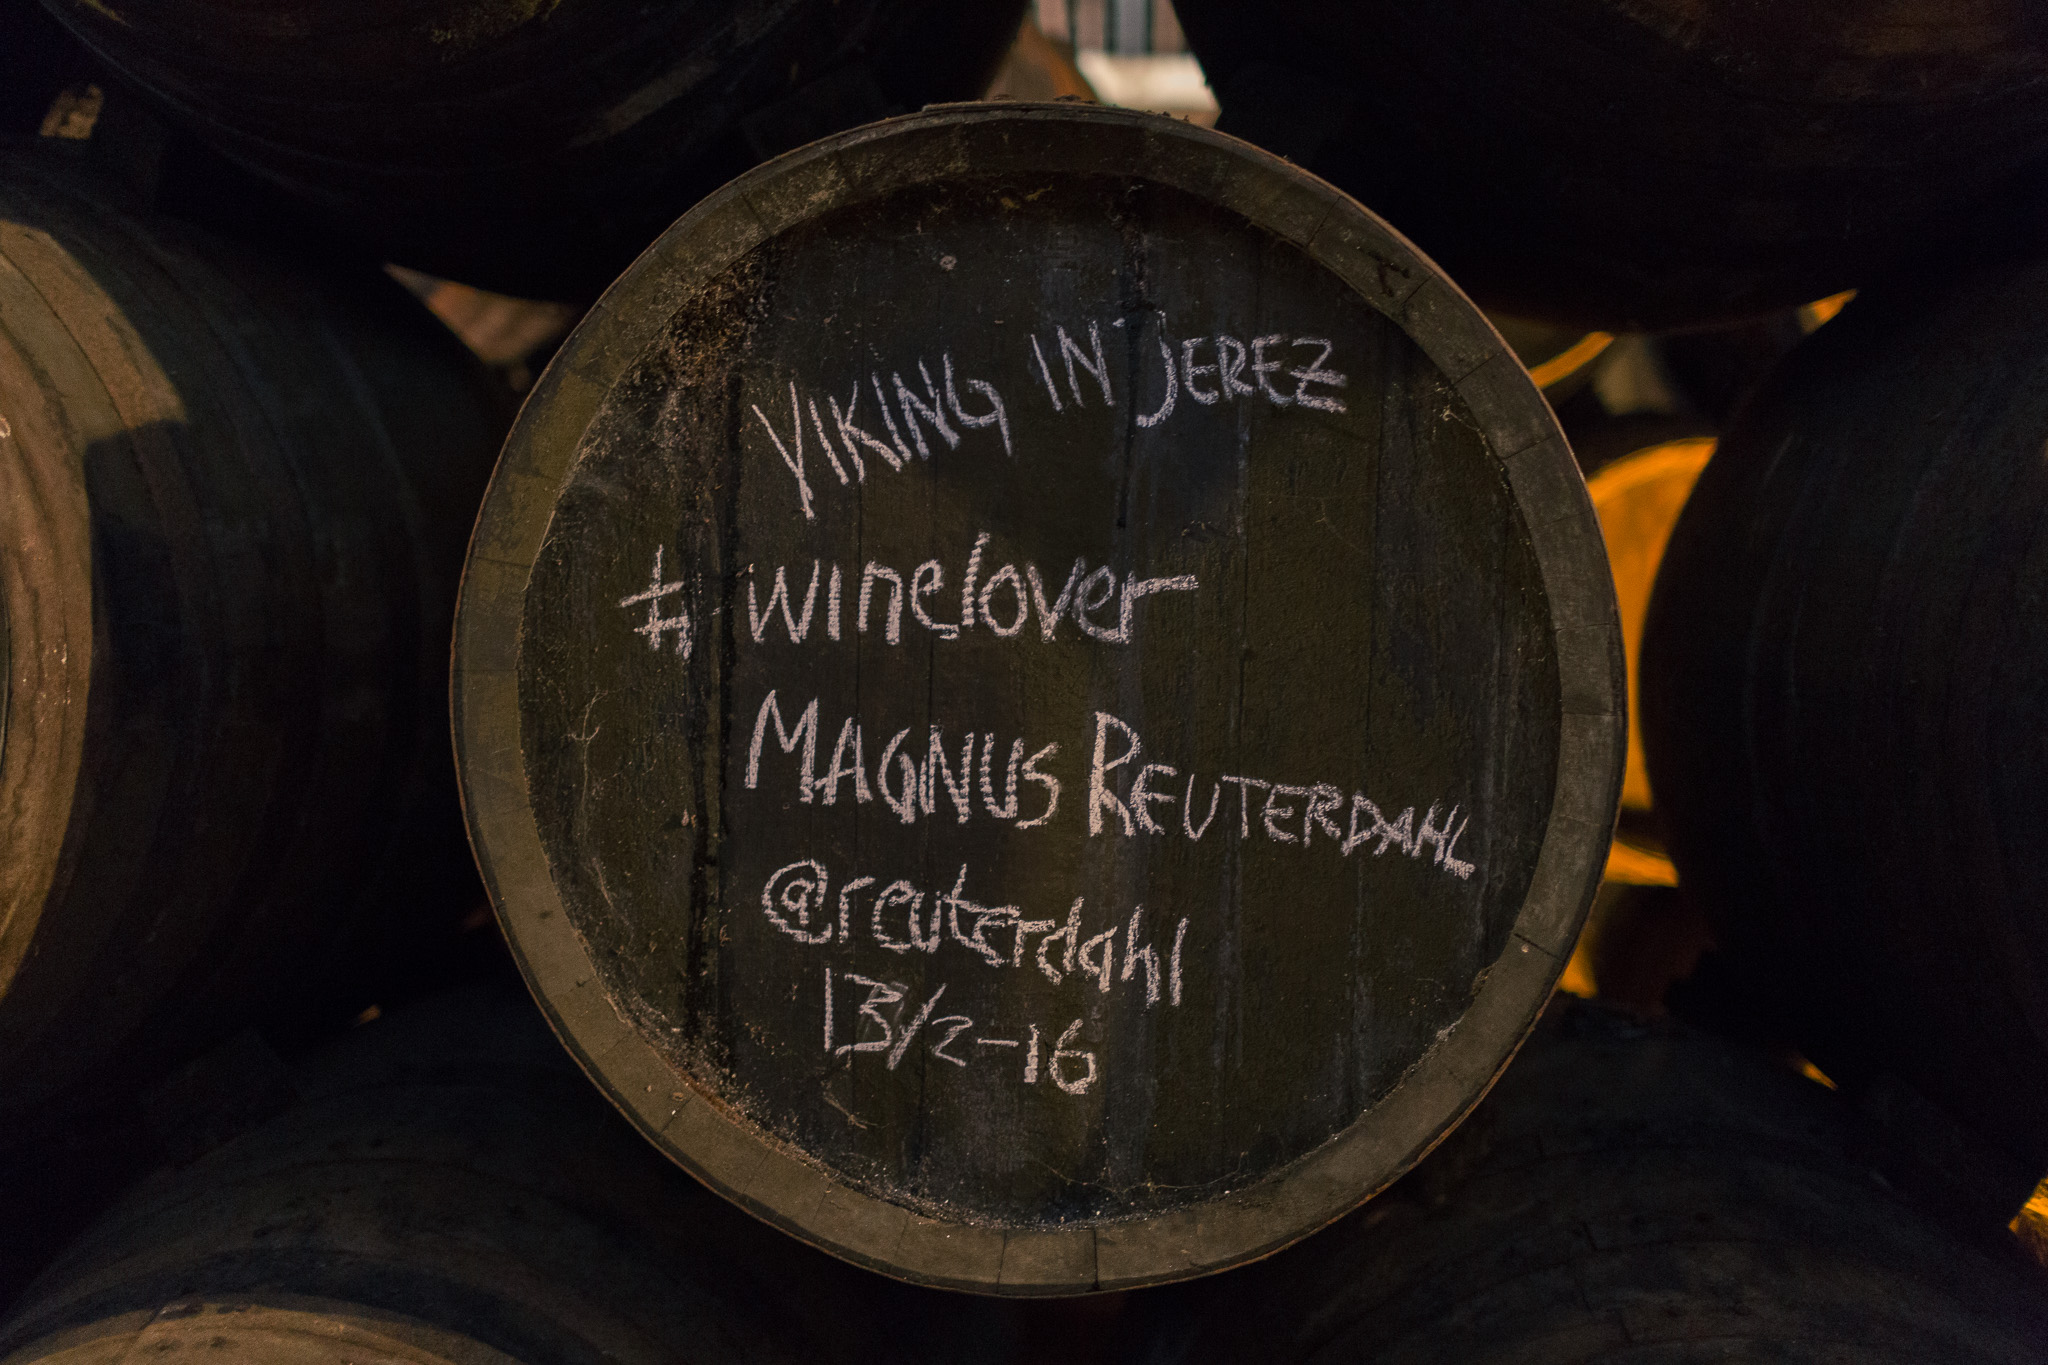 VIKING IN JEREZ
# winelover
MAGNUS REUTERDAHL
@reuterdahl
13/2-16